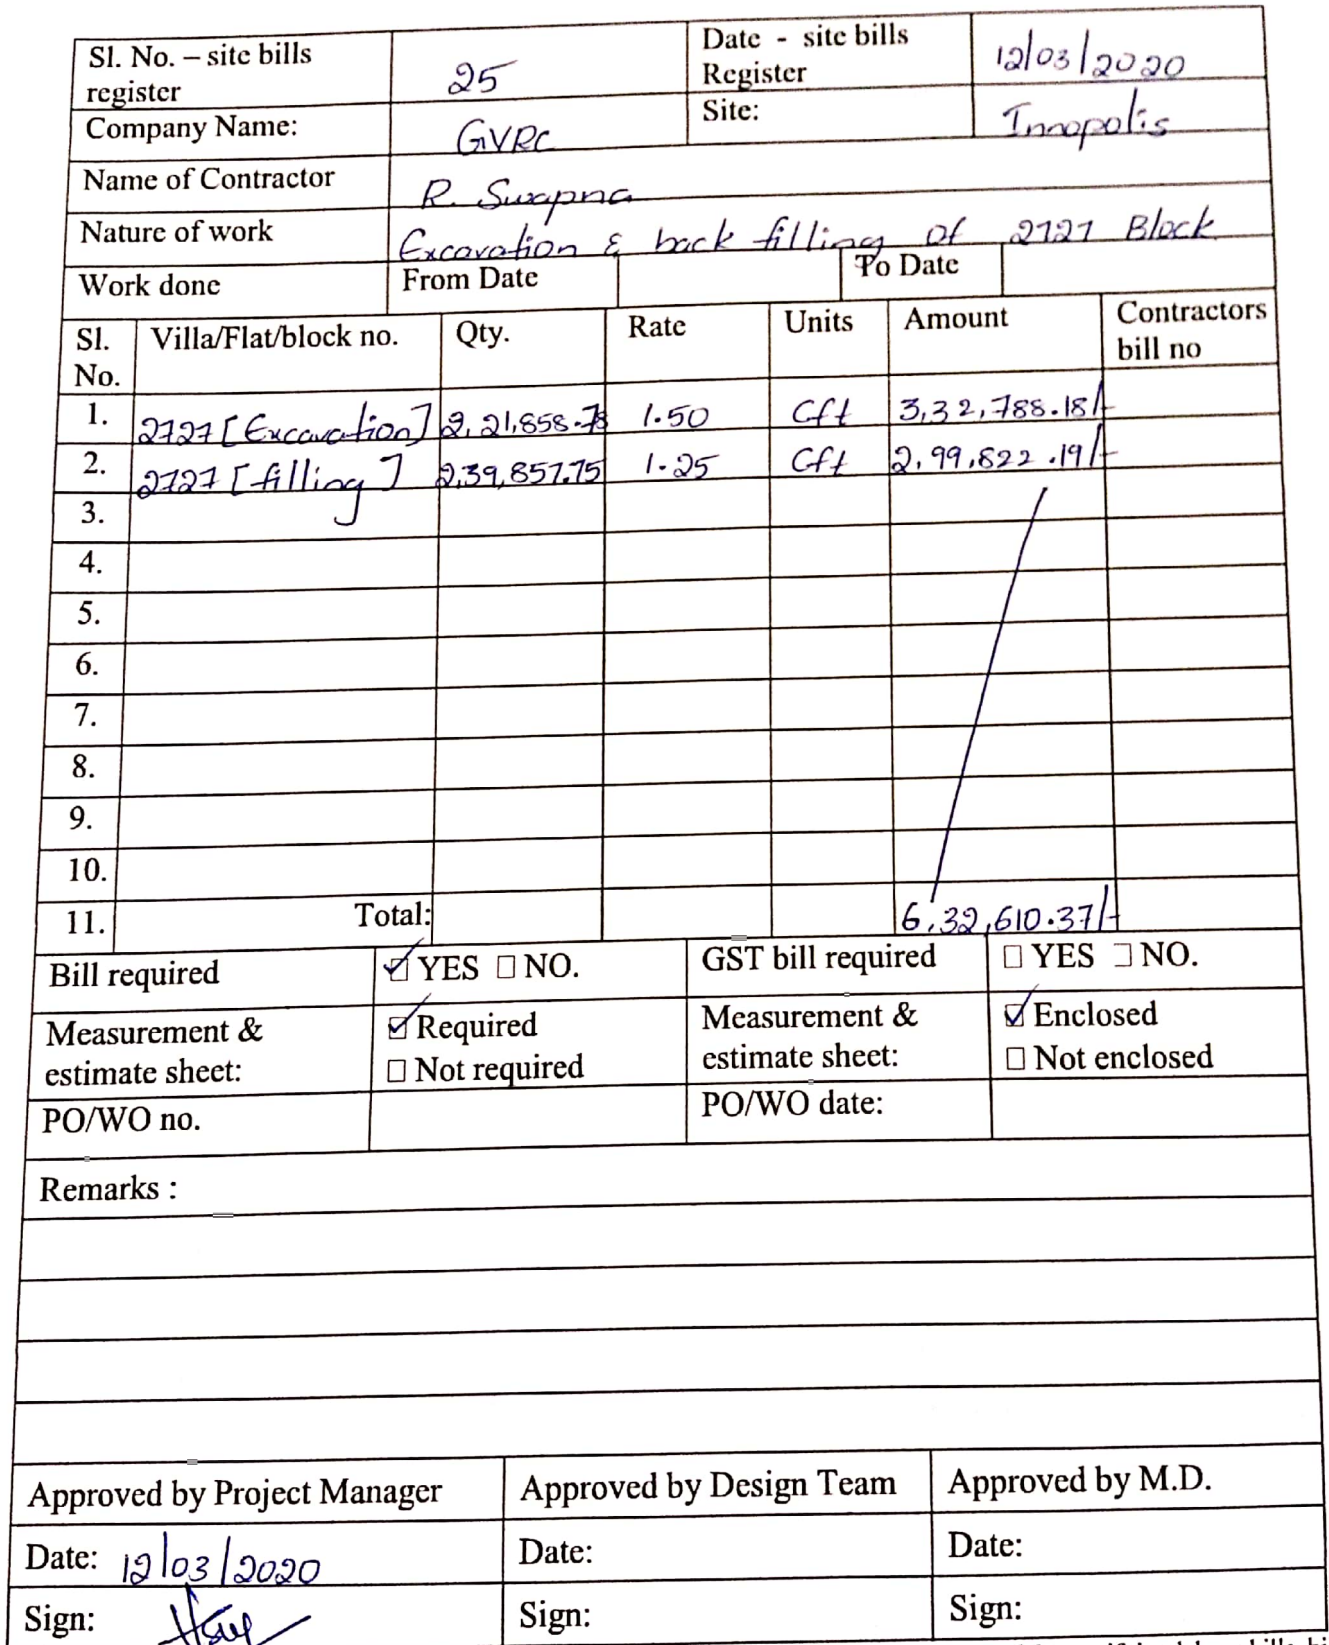 Sl. No. – site bills register 25 Date - site bills Register 12/03/2020
Company Name: GVRC Site: Innopolis
Name of Contractor R. Swapna
Nature of work Excavation & back filling of 2727 Block
Work done From Date To Date
Sl. No. Villa/Flat/block no. Qty. Rate Units Amount Contractors bill no
1. 2727 [Excavation] 2,21,858.78 1.50 Cft 3,32,788.18/-
2. 2727 [filling] 2,39,857.75 1.25 Cft 2,99,822.19/-
3.
4.
5.
6.
7.
8.
9.
10.
11. Total: 6,32,610.37/-
Bill required ☑ YES ☐ NO. GST bill required ☐ YES ☐ NO.
Measurement & estimate sheet: ☑ Required ☐ Not required Measurement & estimate sheet: ☑ Enclosed ☐ Not enclosed
PO/WO no. PO/WO date:
Remarks :
Approved by Project Manager Approved by Design Team Approved by M.D.
Date: 12/03/2020 Date: Date:
Sign: Sign: Sign: